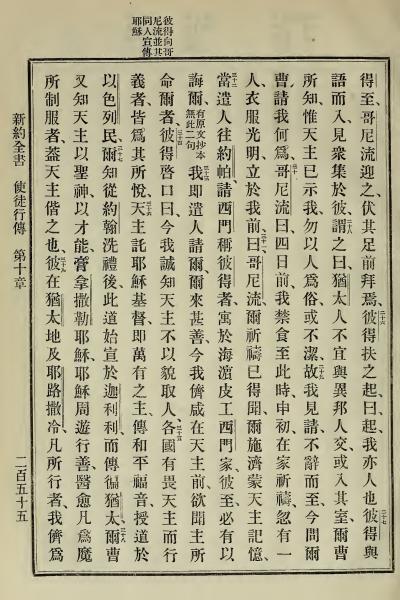 彼得向哥
尼流並其
同人宣傳
耶穌
得至、哥尼流迎之、伏其足前拜焉、二十六彼得扶之起、曰、起、我亦人也、彼得與
語而入、見衆集於彼、謂之曰、猶太人不宜與異邦人交、或入其室、爾曹
所知、惟天主已示我、勿以人爲俗或不潔、二十九故我見請、不辭而至、今問爾
曹、請我何爲、哥尼流曰、四日前、我禁食至此時、申初在家祈禱、忽有一
人、衣服光明、立於我前、三十一曰、哥尼流、爾祈禱已得聞、爾施濟蒙天主記憶、
三十二當遣人往約帕、請西門稱彼得者、寓於海濱皮工西門家、彼至必有以
誨爾、有原文抄本無此二句三十三我卽遣人請爾、爾來甚善、今我儕咸在天主前、欲聞主所
命爾者、三十四彼得啓口曰、今我誠知天主不以貌取人、三十五各國有畏天主而行
義者、皆爲其所悅、三十六天主託耶穌基督、卽萬有之主、傳和平福音、授道於
以色列民、三十七爾知從約翰洗禮後、此道始宣於迦利利、而傳徧猶太、三十八爾曹
又知天主以聖神以才能膏拿撒勒耶穌、耶穌周遊行善、醫愈凡爲魔
所制服者、蓋天主偕之也、三十九彼在猶太地、及耶路撒冷、凡所行者、我儕爲
新約全書 使徒行傳 第十章 二百五十五